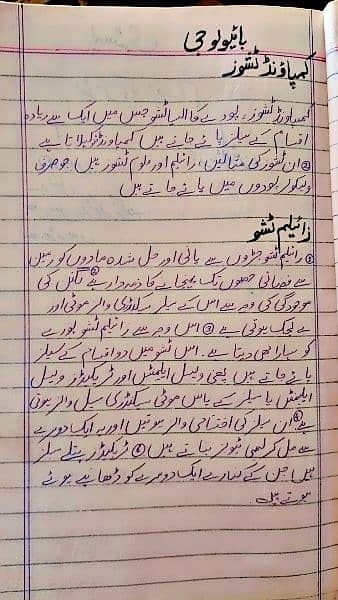 بائیولوجی
کمپاؤنڈ ٹشوز
کمپاؤنڈ ٹشوز، پودے کا ایسا ٹشو جس میں ایک سے زیادہ
اقسام کے سیلز پائے جاتے ہیں کمپاؤنڈ ٹشو کہلاتا ہے
ان ٹشوز کی مثالیں، زائیلم اور فلوئم ٹشوز ہیں جو صرف
ویسکولر پودوں میں پائے جاتے ہیں
زائیلم ٹشو
① زائیلم ٹشو جڑوں سے پانی اور حل شدہ مادوں کو زمین
سے فضائی حصوں تک پہنچانے کا ذمہ دار ہے ② لگنن کی
موجودگی کی وجہ سے اس کے سیلز سیکنڈری والز موٹی اور
بے لچک ہوتی ہے ③ اس وجہ سے زائیلم ٹشو پودے
کو سہارا بھی دیتا ہے۔ اس ٹشو میں دو اقسام کے سیلز
پائے جاتے ہیں یعنی ویسل ایلیمنٹس اور ٹریکیڈز ویسل
ایلیمنٹس یا سیلز کے پاس موٹی سیکنڈری سیل والز ہوتی
ہے ان سیلز کی اختتامی والز نہیں ہوتیں اور یہ ایک دوسرے
سے مل کر لمبی ٹیوبز بناتے ہیں ④ ٹریکیڈز پتلے سیلز
ہیں جن کے کنارے ایک دوسرے کو ڈھانپے ہوئے
ہوتے ہیں